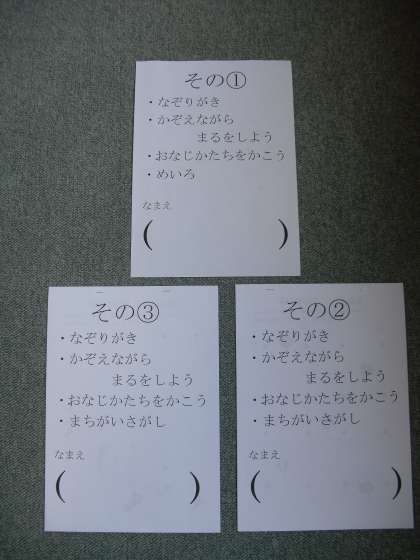 その①
・なぞりがき
・かぞえながら
まるをしよう
・おなじかたちをかこう
・めいろ
なまえ
( )
その③
・なぞりがき
・かぞえながら
まるをしよう
・おなじかたちをかこう
・まちがいさがし
なまえ
( )
その②
・なぞりがき
・かぞえながら
まるをしよう
・おなじかたちをかこう
・まちがいさがし
なまえ
( )